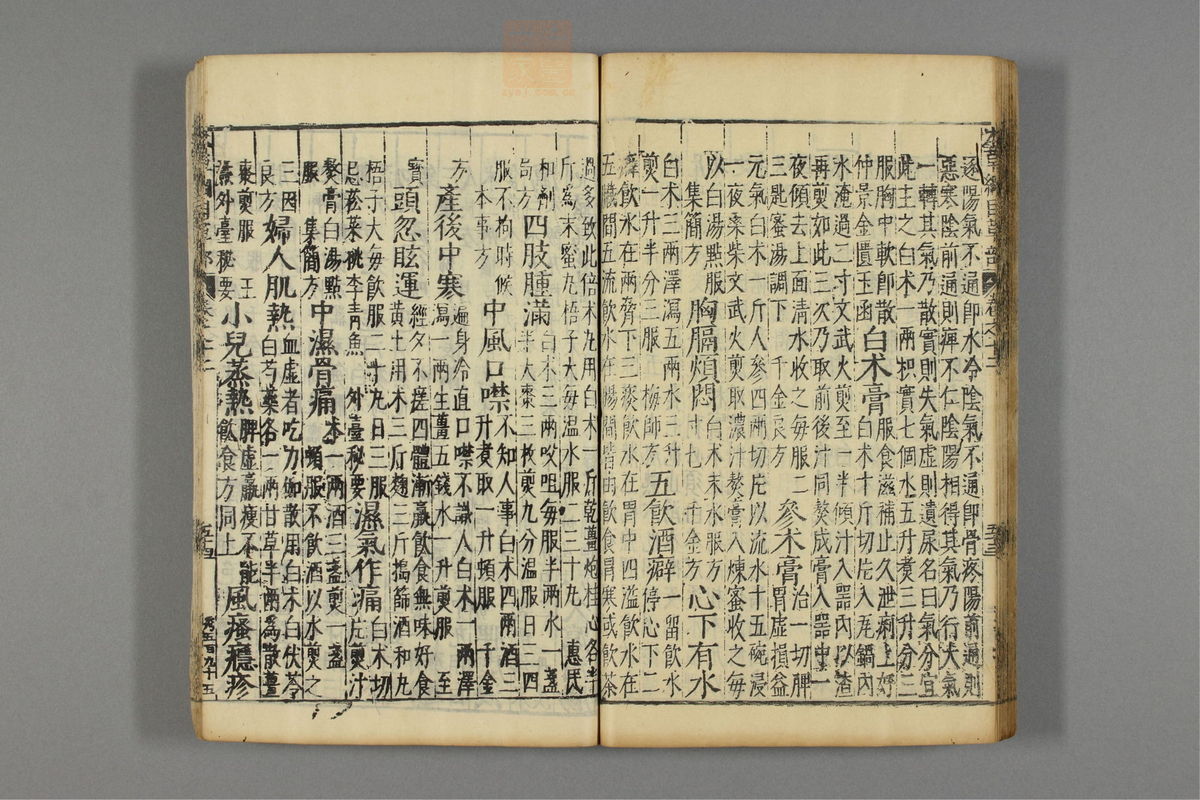 本草綱目草部 卷之十二 五三
逐陽氣不通即水冷陰氣不通即骨疼陽前通則
惡寒陰前通則痺不仁陰陽相得其氣乃行大氣
一轉其氣乃散實則失氣虛則遺尿名曰氣分宜
此主之白术一兩枳實七個水五升煑三升分三
服胸中軟即散
仲景金匱玉函
白术膏
服食滋補止久泄痢上好
白术十斤切片入瓦鍋內
水淹過二寸文武火煎至一半傾汁入器內以渣
再煎如此三次乃取前後汁同熬成膏入器中一
夜傾去上面清水收之每服二
三匙蜜湯調下 千金良方
參术膏
治一切脾
胃虛損益
元氣白术一斤人參四兩切片以流水十五碗浸
一夜桒柴文武火煎取濃汁熬膏入煉蜜收之每
以白湯點服
集簡方
胸膈煩悶
白术末水服方
寸七 千金方
心下有水
白术三兩澤瀉五兩水三升
煎一升半分三服 梅師方
五飲酒癖
一留飲水
停心下二
癖飲水在兩脅下三痰飲水在胃中四溢飲水在
五臟間五流飲水在腸間皆由飲食胃寒或飲茶
過多致此倍术丸用白术一斤乾薑炮桂心各半
斤為末蜜丸梧子大每温水服二三十丸 惠民
和劑
局方
四肢腫滿
白术三兩㕮咀每服半兩水一盞
半大棗三枚煎九分温服日三四
服不拘時候
本事方
中風口噤
不知人事白术四兩酒三
升煮取一升頓服 千金
方
產後中寒
遍身冷直口噤不識人白术一兩澤
瀉一兩生薑五錢水一升煎服 至
寶
頭忽眩運
經久不瘥四體漸羸飲食無味好食
黃土用术三斤麯三斤搗篩酒和丸
梧子大每飲服二十丸日三服
忌菘菜桃李青魚 外臺秘要
濕氣作痛
白术切
片煎汁
熬膏白湯點
服 集簡方
中濕骨痛
术一兩酒三盞煎一盞
頓服不飲酒以水煎之
三因
良方
婦人肌熱
血虛者吃力伽散用白术白伏苓
白芍藥各一兩甘草半兩為散薑
棗煎服 王
燾外臺秘要
小兒蒸熱
脾虛羸瘦不能
飲食方同上
風瘙癮疹
本草綱目草部 卷之十二 五四 秀五百九十五